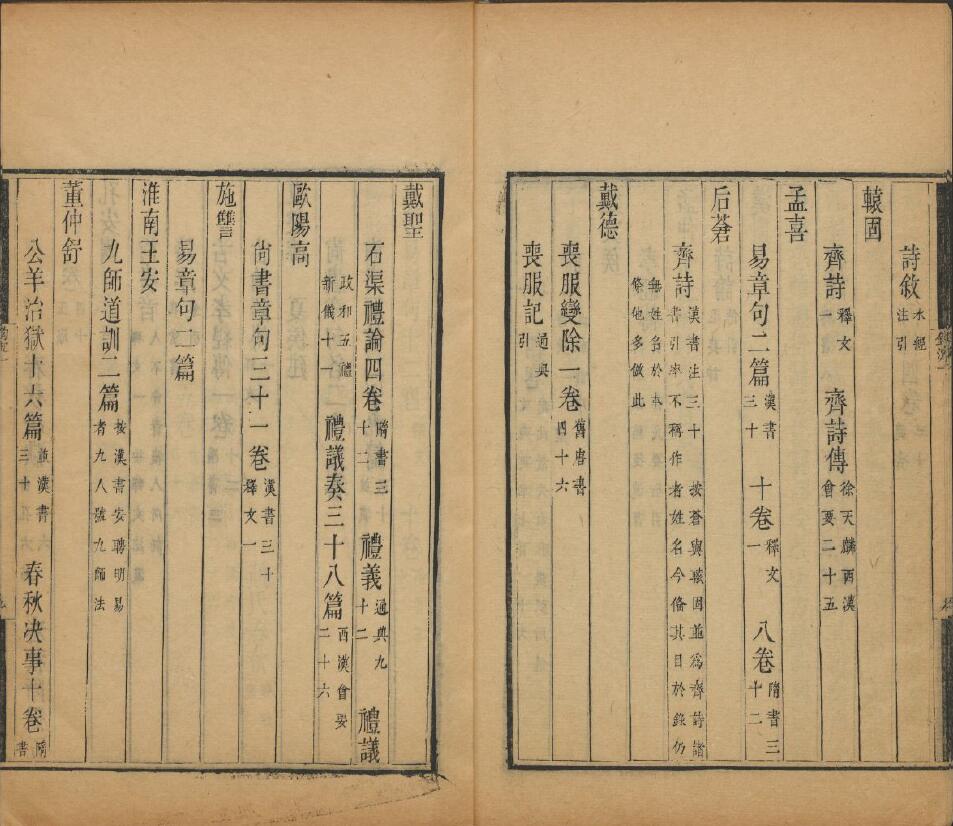 詩敘水經注引
轅固
齊詩釋文一 齊詩傳徐天麟西漢會要二十五
孟喜
易章句二篇漢書三十 十卷釋文一 八卷隋書三十二
后蒼
齊詩漢書注三十書引率不稱作 按蒼與轅固並爲齊詩諸者姓名今俻其目於錄仍
無姓名於本條他多倣此
戴德
喪服變除一卷舊唐書四十六
喪服記通典引
戴聖
石渠禮論四卷隋書三十二 禮義通典九十二 禮議
政和五禮新儀十一 禮議奏三十八篇西漢會要二十六
歐陽高
尙書章句三十一卷漢書三十釋文一
施讐
易章句二篇
淮南王安
九師道訓二篇按漢書安聘明易者九人號九師法
董仲舒
公羊治獄十六篇漢書三十 春秋決事十卷隋書